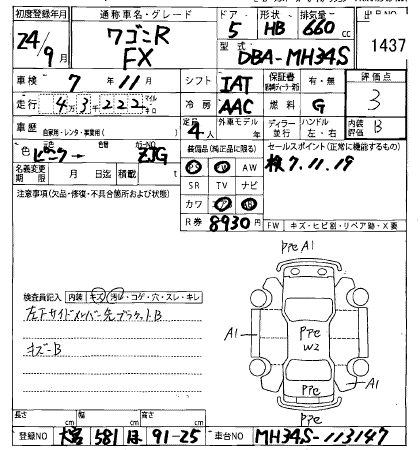 初度登録年月 通称車名・グレード ドア 形状 排気量 出品NO
24/9月 ワゴンR FX 5 HB 660cc 1437
型式 DBA-MH34S
車検 7年11月 シフト IAT 保証書 有・無 評価点
走行 4万3千222 マイル キロ 冷房 AAC 燃料 G 3
車歴 自家用・レンタ・事業用( ) 定員 4人 外車モデル 年 ディーラー 並行 ハンドル 左・右 内装評価 B
色 ピンク 色替 カラーNO ZJG 装備品(純正品に限る) セールスポイント(正常に機能するもの)
名義変更期限 月 日迄 積載 t AW 検7.11.19
注意事項(欠品・修復・不具合箇所および状態) SR TV ナビ
カワ
R券 8930円 FW キズ・ヒビ割・リペア跡・X要
PPe A1
検査員記入 内装 キズ・汚レ・コゲ・穴・スレ・キレ
左下サイドメンバー先ブラケットB
A1 PPe W2
キズ-B
A1
PPe
長さ cm 幅 cm 高さ cm
登録NO 大宮 581 ほ 91-25 車台NO MH34S-113147